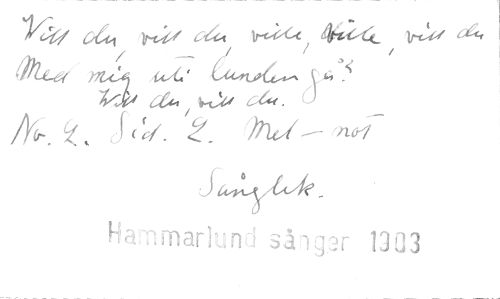 Vill du, vill du, ville, ville, vill du
Med mig uti lunden gå?
Vill du, vill du.
No. 2. Sid. 2. Mel-not
Sånglek.
Hammarlund sånger 1903